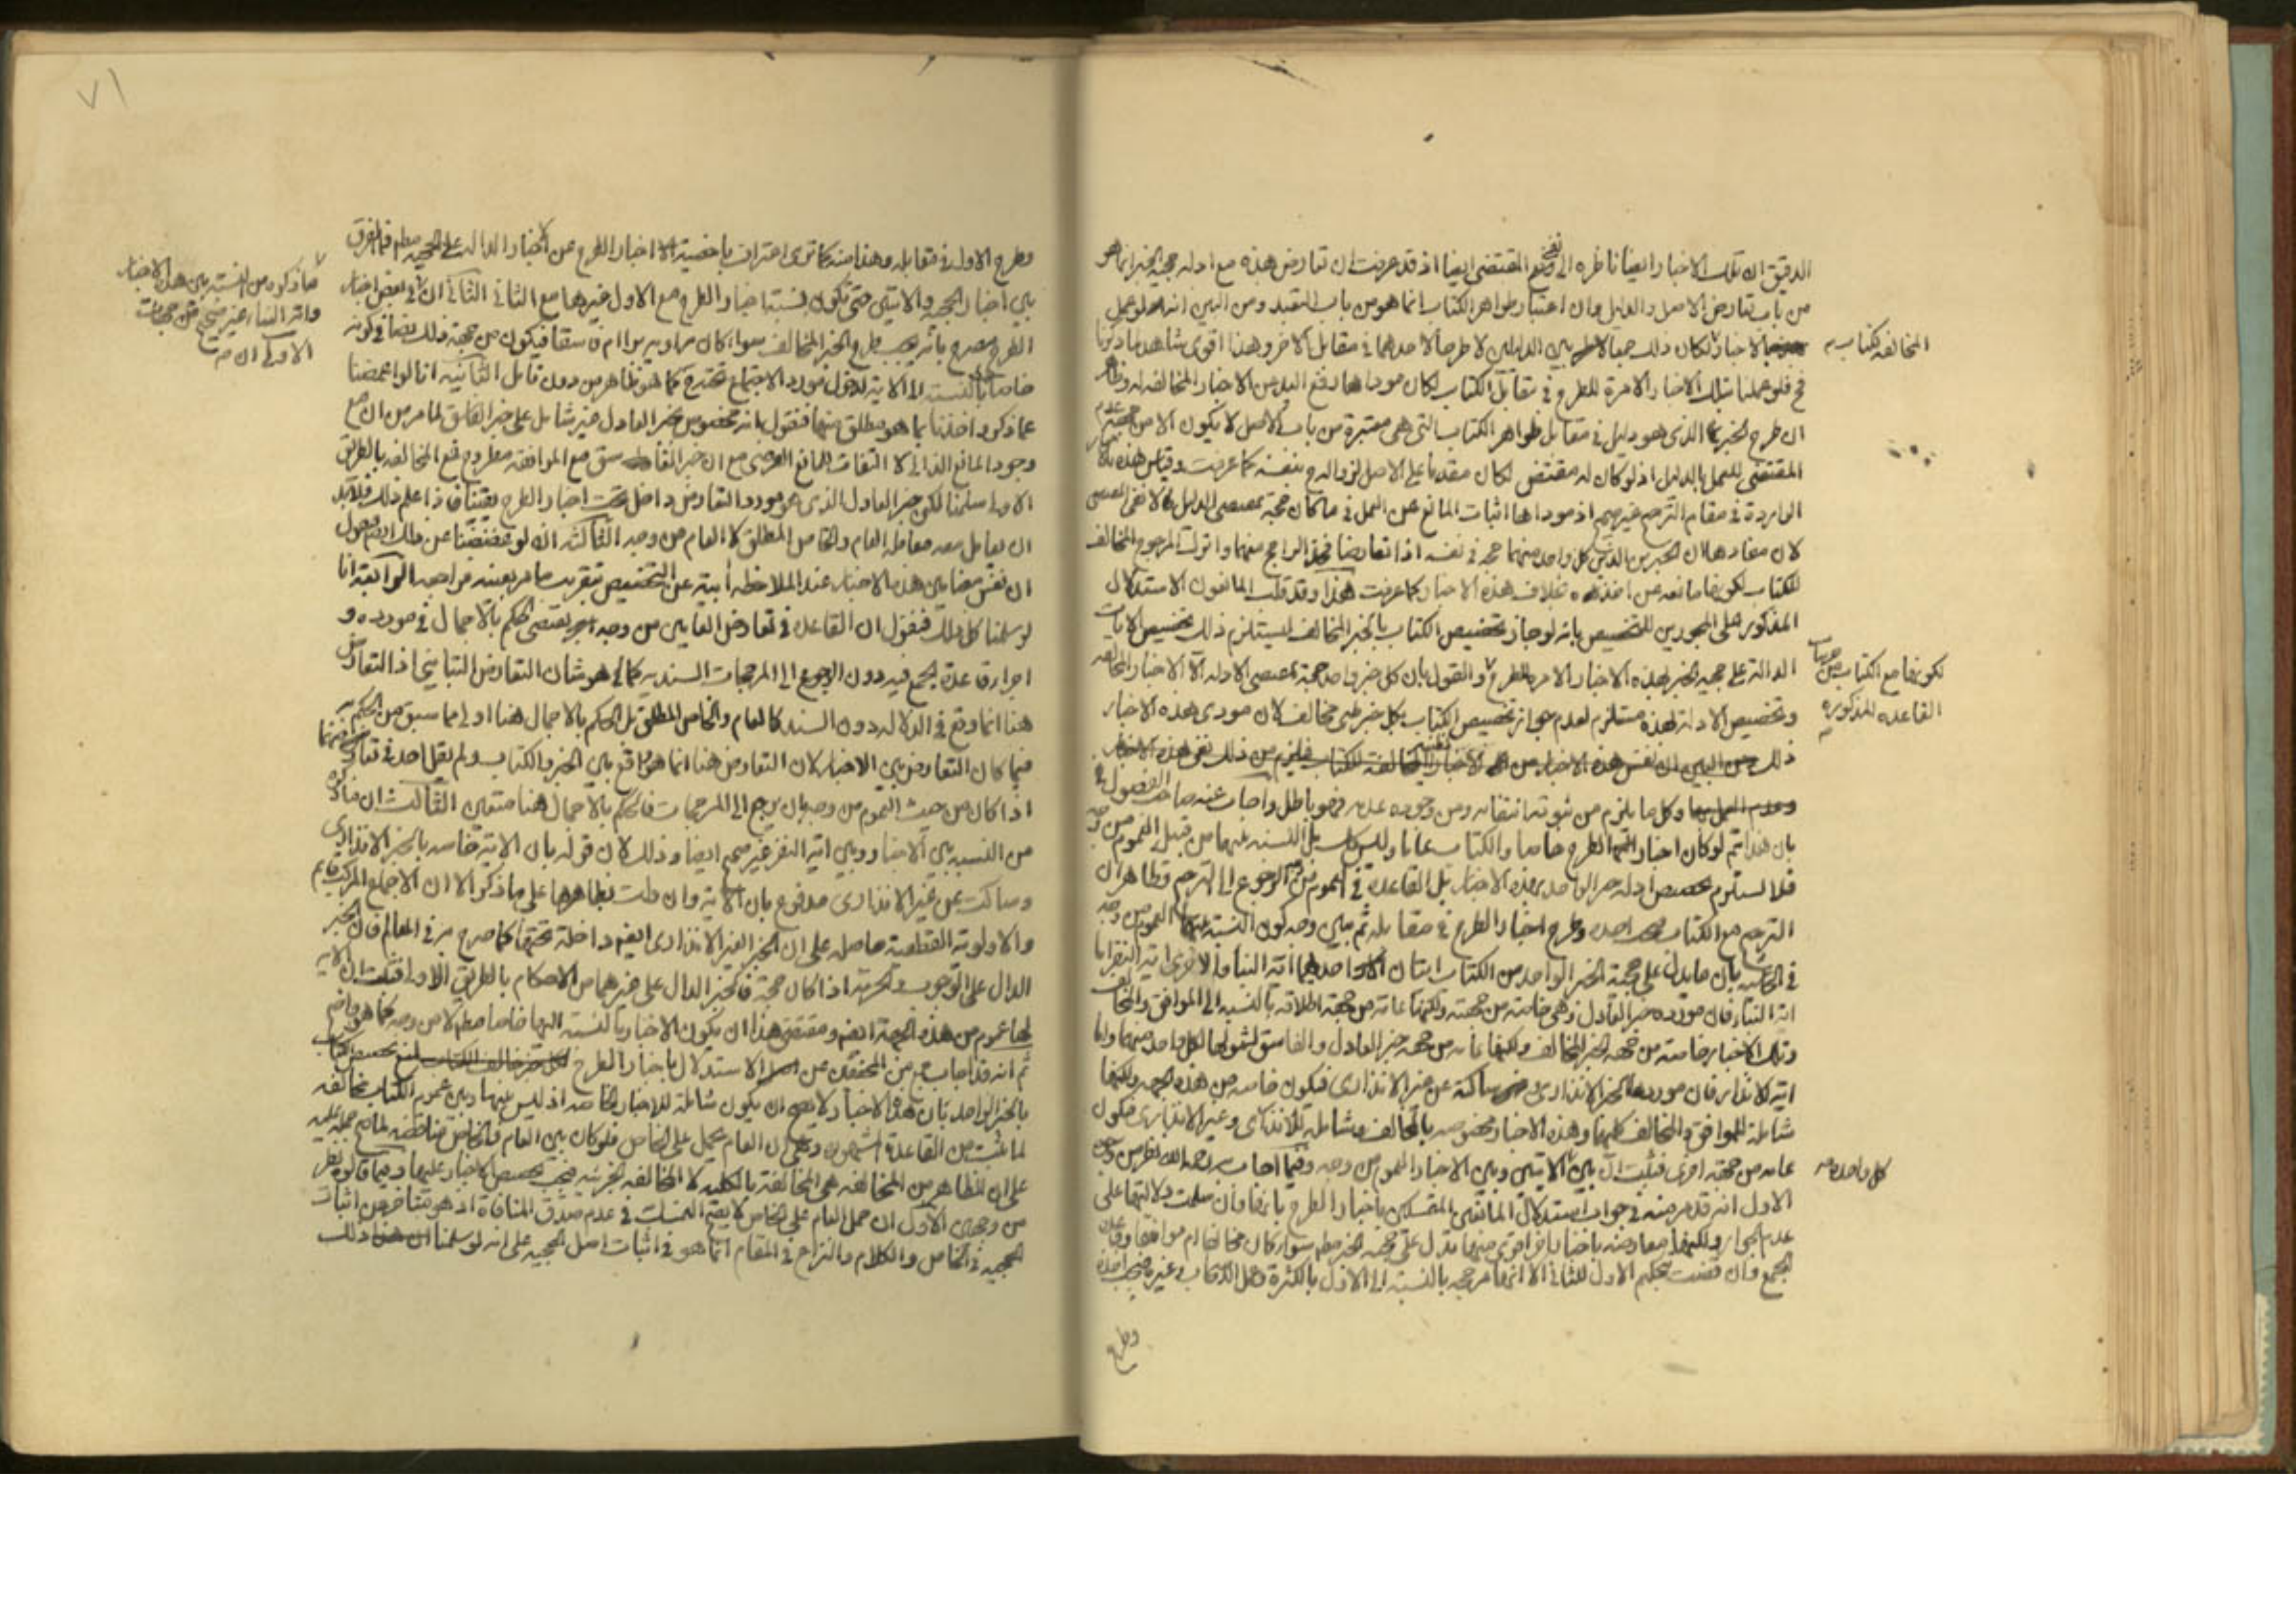 الدقيق ان تلك الاخبار ايضا ناظرة الى المقتضى ايضا اذ قد عرفت ان تعارض هذه مع ادله حجية الخبر انما هو
من باب تعارض الاصل والدليل وان اعتبار ظواهر الكتاب انما هو من باب التعبد ومن البين انه لو عمل
الاخبار لكان ذلك جمعا بين الدليلين لا طرحا لاحدهما في مقابل الاخر وهذا اقوى شاهد لما ذكرنا
المخالفة لكتاب
فلو عملنا بتلك الاخبار الامرة للطرح في مقابل الكتاب لكان موداها رفع اليد من الاخبار المخالفة له
ان طرح الخبر الذى هو دليل في مقابل ظواهر الكتاب التى هى معتبرة من باب الاصل لا يكون الا من عدم
المقتضى للعمل بالدليل اذ لو كان له مقتضى لكان مقدما على الاصل لزواله بنفسه كما عرفت وقياس هذه
الواردة في مقام الترجيح غير صحيح اذ موداها اثبات المانع عن العمل في ما كان حجة بمقتضى الدليل لا نفى المقتضى
لان مفادها ان الخبرين الذين كل واحد منهما حجة في نفسه اذا تعارضا فخذ الراجح منهما واترك المرجوح المخالف
للكتاب لكونها مانعه عن اخذه بخلاف هذه الاخبار كما عرفت هذا وقد قلب المانعون الاستدلال
المذكور على المجوزين للتخصيص بانه لو جاز تخصيص الكتاب بالخبر المخالف ليستلزم ذلك تخصيص الايات
الدالة على حجية الخبر بهذه الاخبار الامرة للطرح والقول بان كل خبر واحد حجة بمقتضى الادله الا الاخبار المخالفه
لكونها مع الكتاب من
القاعده المذكوره
وتخصيص الادلة بهذه مستلزم لعدم جواز تخصيص الكتاب بكل خبر ظنى مخالف لان مودى هذه الاخبار
ذلك
وكل ما يلزم من ثبوته انتفائه ومن وجوده عدمه فهو باطل واجاب عنه صاحب الفصول
بان هذا يتم لو كان اخبار الطرح خاصا والكتاب عاما وليس كذلك بل النسبة بينهما من قبيل العموم من وجه
فلا يستلزم تخصيص ادلة خبر الواحد بهذه الاخبار بل القاعدة في العموم من وجه الرجوع الى الترجيح وظاهر ان
الترجيح مع الكتاب وطرح اخبار الطرح في مقابله ثم بين وجه كون النسبة بينهما العموم من وجه
في الحاشيه بان ما يدل على حجية الخبر الواحد من الكتاب ايتان احدهما اية النبا والاخرى اية النفر اما
اية النبا فان مورده خبر العادل فهى خاصة من جهته ولكنها عامة من جهة اطلاقه بالنسبه الى الموافق والمخالف
وتلك الاخبار خاصة من جهة الخبر المخالف ولكنها عامه من جهة خبر العادل والفاسق لشمولها لكل واحد منهما واما
اية الانذار فان موردها الخبر الانذارى ساكتة عن خبر الا انذارى فيكون خاصه من هذه الجهه ولكنها
شاملة للموافق والمخالف كليهما وهذه الاخبار مخصوصه بالمخالف وشاملة للانذارى وغير الانذارى فيكون
عامه من جهة اخرى فثبت ان بين الايتين وبين الاخبار العموم من وجه وفيما اجاب به رحمه الله نظر من وجوه
كل واحدة
الاول انه قد مر منه في جواب استدلال المانعين المتمسكين باخبار الطرح بانها وان سلمت دلالتها على
عدم الجواز ولكنها معارضه باخبار اخر اقوى منها تدل على حجية الخبر مطم سواء كان مخالفا ام موافقا
الجمع وان قضت بتحكيم الاول للثانى الا انها مرجحه بالنسبة الى الاول بالكثرة
وطرح
٧١
وطرح الاول في مقابله وهذا منه كما ترى اعتراف باخصية اخبار الطرح من الاخبار الدالة على الحجيه مطم فما الفرق
بين اخبار الحجية والايتين حتى تكون نسبة اخبار الطرح مع الاول غيرها مع الثانى الثانى ان في بعض اخبار
ما ذكره من النسبة بين هذه الاخبار
واية النبا غير صحيح من جهات
الاولى ان
الطرح مصرح بانه يجب طرح الخبر المخالف سواء كان راويه برا ام فاسقا فيكون من جهة ذلك نصا في كونه
خاصا بالنسبة الى الاية لدخول مورد الاجتماع تحته كما هو ظاهر من دون تامل الثانية انا لو اغمضنا
عما ذكر واخذنا بما هو مطلق منهما فنقول بانه مخصوص بخبر العادل غير شامل على خبر الفاسق لما مر من ان مع
وجود المانع الذاتى لا التفات للمانع العرضى مع ان خبر الفاسق مع الموافقه مطروح فمع المخالفه بالطريق
الاولى سلمنا لكن خبر العادل الذى هو مورد التعارض داخل تحت اخبار الطرح فلابد
ان يعامل معه معاملة العام والخاص المطلق لا العام من وجه الثالثة انه لو تغمضنا عن ذلك ايضا فنقول
ان نفس مضامين هذه الاخبار عند الملاحظه ابية عن التخصيص بتقريب ما مر بعينه فراجعه الرابعة انا
لو سلمنا كل ذلك فنقول ان القاعدة في تعارض العامين من وجه يقتضى الحكم بالاجمال في مورده و
اجراء قاعدة الجمع فيه دون الرجوع الى المرجحات السنديه كما هو شان التعارض التبايني اذ التعارض
هنا انما وقع في الدلالة دون السند كالعام والخاص المطلق بل الحكم بالاجمال هنا اولى مما سبق من الحكم به
فيما كان التعارض بين الاخبار لان التعارض هنا انما هو واقع بين الخبر والكتاب ولم يقل احد في تعارضهما
اذا كان من حيث العموم من وجه بان يرجع الى المرجحات فالحكم بالاجمال هنا متعين الثالث ان ما ذكره
من النسبه بين الاخبار وبين اية النفر غير صحيح ايضا وذلك لان قوله بان الاية خاصه بالخبر الانذارى
وساكت عن غير الانذارى مدفوع بان الاية وان دلت بظاهرها على ما ذكر الا ان الاجماع المركب قائم
والاولوية القطعية حاصله على ان الخبر الغير الانذارى ايضا داخلة تحتها كما صرح به في المعالم فان الخبر
الدال على الوجوب والحرمة اذا كان حجة فالخبر الدال على غيرهما من الاحكام بالطريق الاولى فثبت ان الاية
لها عموم من هذه الجهة ايضا ومقتضى هذا ان يكون الاخبار بالنسبة اليها خاصا مطم لا من وجه كما هو واضح
ثم انه قد اجاب جمع من المحققين عن الاستدلال باخبار الطرح لمنع تخصيص الكتاب
بالخبر الواحد بان هذه الاخبار لا يصح ان يكون شاملة للاخبار الخاصه اذ ليس بينها وبين عموم الكتاب مخالفه
لما ثبت من القاعدة المشهوره وهى ان العام يحمل على الخاص فلو كان بين العام والخاص مناقضه لما صح حمله عليه
على ان الظاهر من المخالفه هى المخالفة بالكليه لا المخالفه الجزئيه فيجب تخصيص الاخبار عليها وفيما قالوه نظر
من وجهين الاول ان حمل العام على الخاص لا يصح التمسك في عدم صدق المنافاة اذ هو متاخر من اثبات
الحجيه في الخاص والكلام والنزاع في المقام انما هو في اثبات اصل الحجيه على انه لو سلمنا ذلك